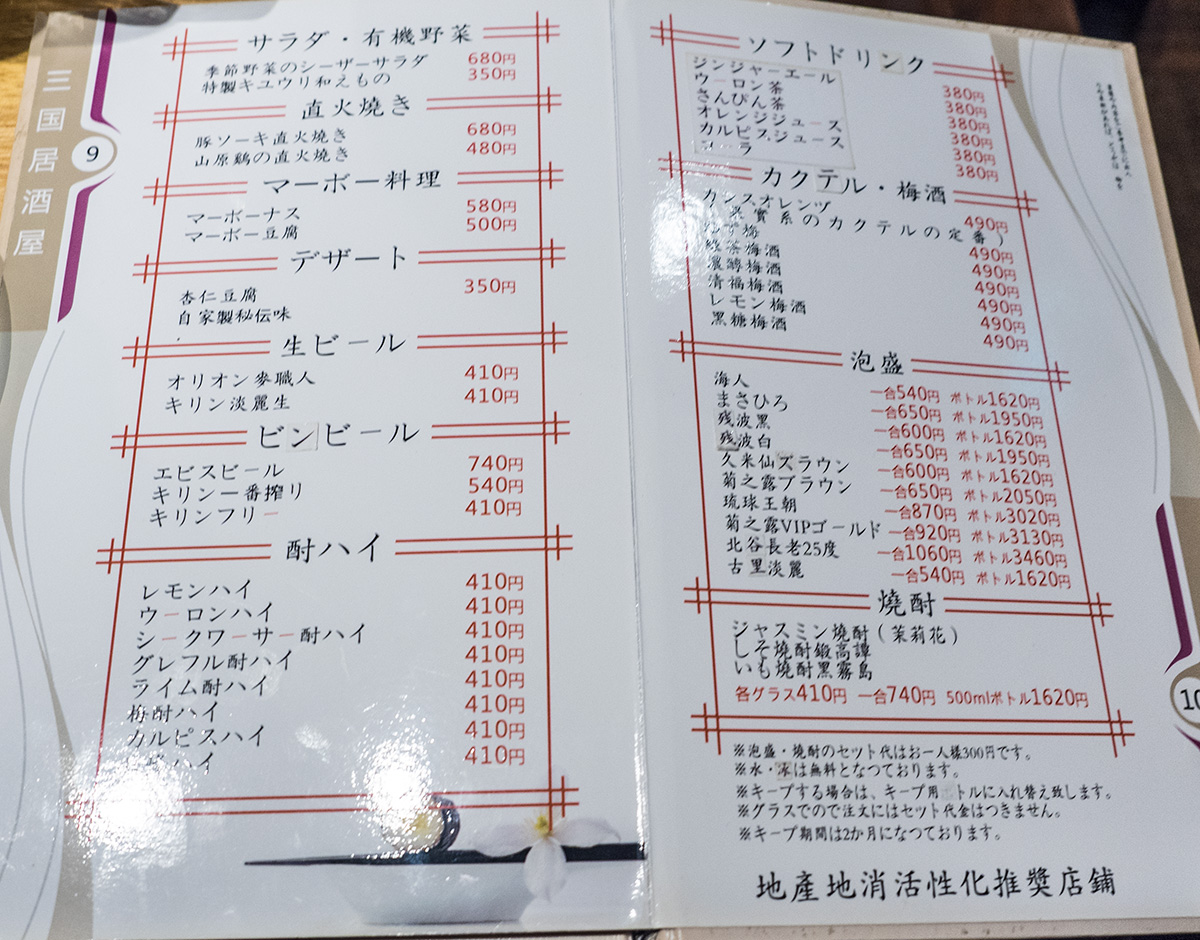 三国居酒屋
9
サラダ・有機野菜
季節野菜のシーザーサラダ 680円
特製キユウリ和えもの 350円
直火焼き
豚ソーキ直火焼き 680円
山原鶏の直火焼き 480円
マーボー料理
マーボーナス 580円
マーボー豆腐 500円
デザート
杏仁豆腐 350円
自家製秘伝味
生ビール
オリオン麥職人 410円
キリン淡麗生 410円
ビンビール
エビスビール 740円
キリン一番搾り 540円
キリンフリー 410円
酎ハイ
レモンハイ 410円
ウーロンハイ 410円
シークワーサー酎ハイ 410円
グレフル酎ハイ 410円
ライム酎ハイ 410円
梅酎ハイ 410円
カルピスハイ 410円
ハイ 410円
ソフトドリンク
ジンジャーエール 380円
ウーロン茶 380円
さんぴん茶 380円
オレンジジュース 380円
カルピスジュース 380円
ラ 380円
カクテル・梅酒
カシスオレンヅ 490円
系のカクテルの定番）
ゆず梅 490円
緑茶梅酒 490円
濃醇梅酒 490円
清福梅酒 490円
レモン梅酒 490円
黒糖梅酒 490円
泡盛
海人 一合540円 ボトル1620円
まさひろ 一合650円 ボトル1950円
残波黒 一合600円 ボトル1620円
残波白 一合650円 ボトル1950円
久米仙ズラウン 一合600円 ボトル1620円
菊之露ブラウン 一合650円 ボトル2050円
琉球王朝 一合870円 ボトル3020円
菊之露VIPゴールド 一合920円 ボトル3130円
北谷長老25度 一合1060円 ボトル3460円
古里淡麗 一合540円 ボトル1620円
焼酎
ジャスミン焼酎（茉莉花）
しそ焼酎鍛高譚
いも焼酎黒霧島
各グラス410円 一合740円 500mlボトル1620円
※泡盛・焼酎のセット代はお一人様300円です。
※水・氷は無料となつております。
※キープする場合は、キープ用 トルに入れ替え致します。
※グラスでので注文にはセット代金はつきません。
※キープ期間は2か月になつております。
地産地消活性化推奨店鋪
10